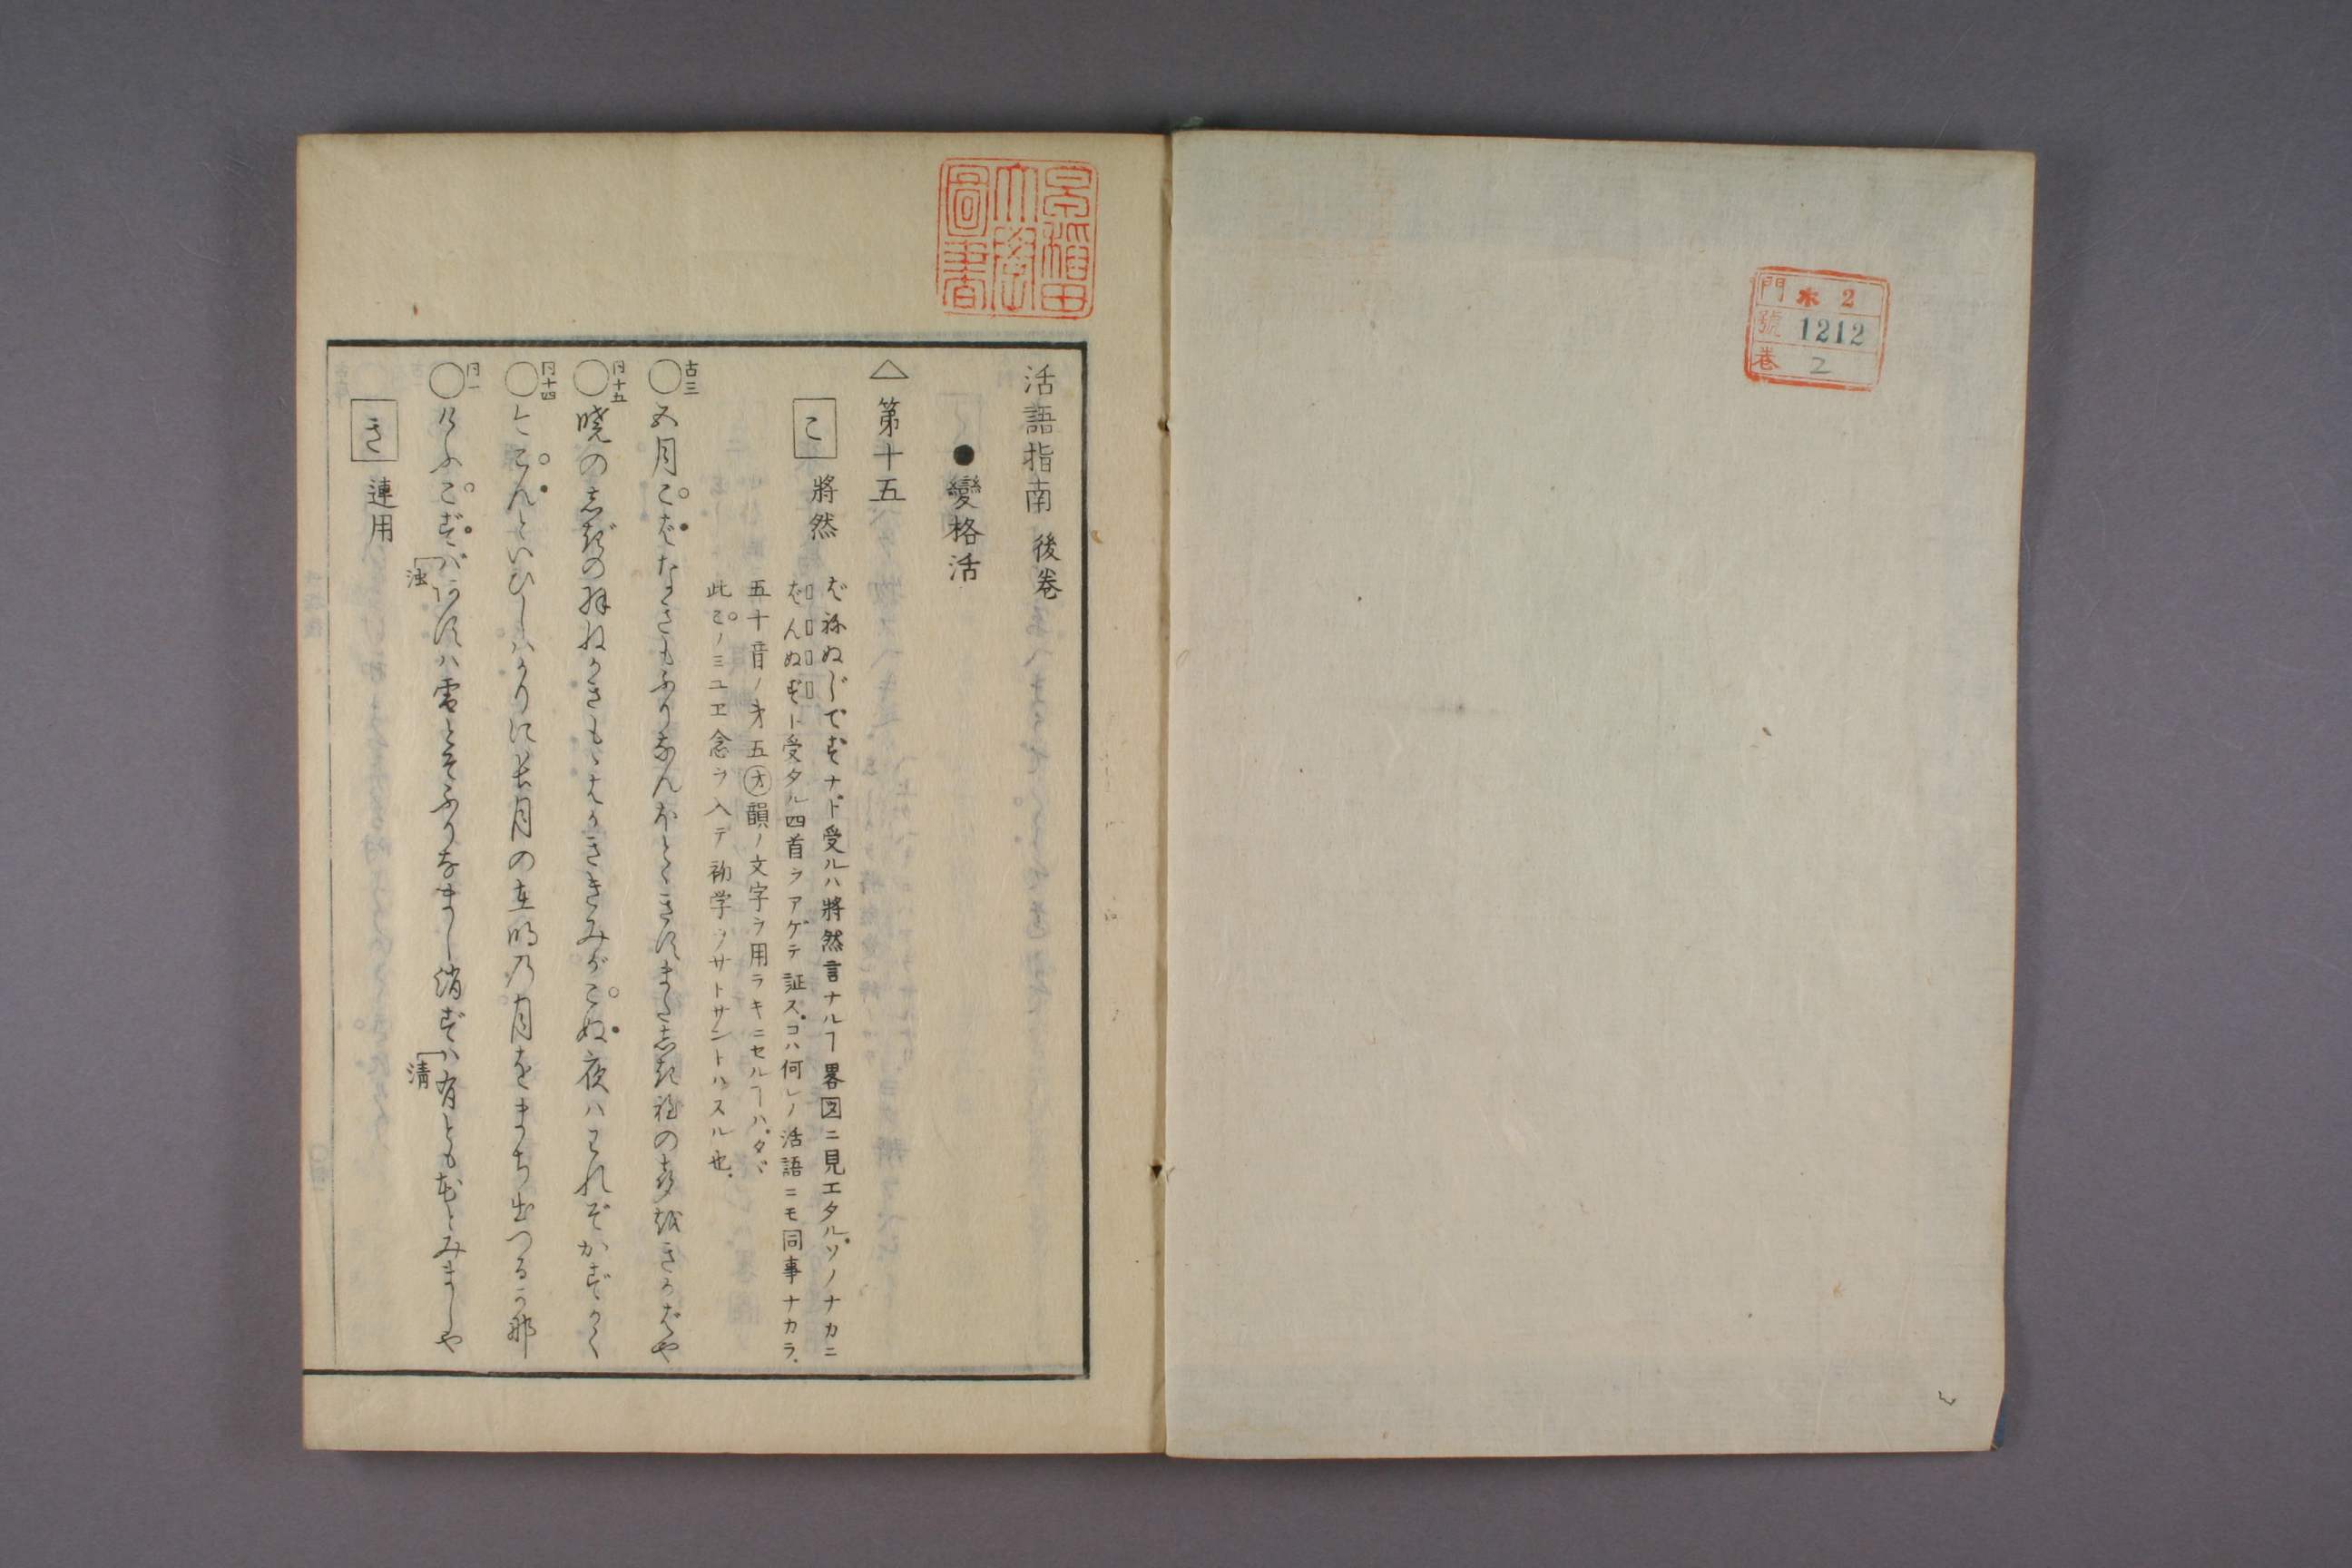 門 ホ 2
號 1212
巻 2
早稲田
大學
圖書
活語指南 後巻
●變格活
△第十五
こ 將然
ばねぬじでずナド受ルハ將然言ナルヿ畧図ニ見エタル。ソノナカニ
ばんぬずト受タル四首ヲアゲテ証ス。コハ何レノ活語ニモ同事ナカラ.
五十音ノオ五オ韻ノ文字ヲ用ラキニセルヿハ.タヾ
此こノミユヱ念ヲ入テ初学ヲサトサントハスル也.
古三
○五月こばなきもふりなんほとゝきすまたしき程の声をきかばや
同十五
○暁のしぎのはねかきもゝはかききみがこぬ夜ハわれぞかずかく
同十四
○今こんといひしハかりに長月の在明の月をまち出つるかな
同一
○けふこずバあすハ雪とそふりなまし消ずハ有とも花とみましや
濁
清
き 連用